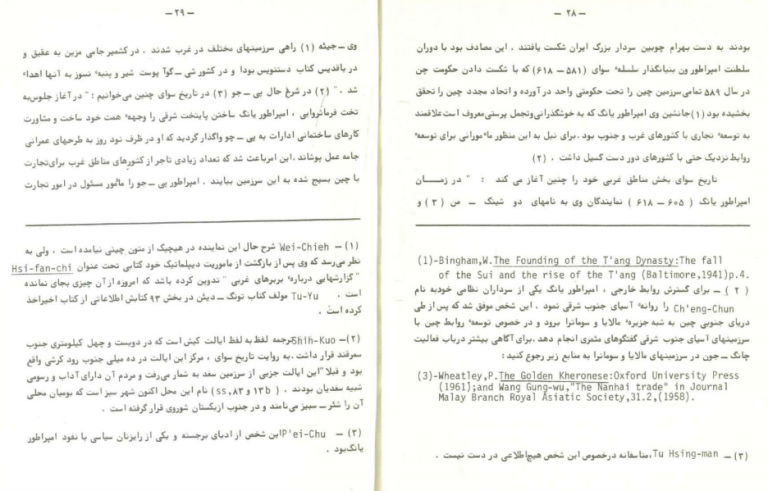 -۲۸-
بودند به دست بهرام چوبین سردار بزرگ ایران شکست یافتند . این مصادف بود با دوران
سلطنت امپراطور ون بنیانگذار سلسله سوای (۵۸۱ – ۶۱۸) که با شکست دادن حکومت چن
در سال ۵۸۹ تمامی سرزمین چین را تحت حکومتی واحد در آورده و اتحاد مجدد چین را تحقق
بخشیده بود (۱) جانشین وی امپراطور یانگ که به خوشگذرانی و تجمل پرستی معروف است علاقمند
به توسعه تجاری با کشورهای غرب و جنوب بود . برای نیل به این منظور مأمورانی برای توسعه
روابط نزدیک حتی با کشورهای دور دست گسیل داشت . (۲)
تاریخ سوای بخش مناطق غربی خود را چنین آغاز می کند : " در زمــان
امپراطور یانگ ( ۶۰۵ – ۶۱۸ ) نمایندگان وی به نامهای دو شینگ – من (۳) و
(1)-Bingham,W.The Founding of the T'ang Dynasty:The fall
of the Sui and the rise of the T'ang (Baltimore,1941)p.4.
( ۲ ) – برای گسترش روابط خارجی ، امپراطور یانگ یکی از سرداران نظامی خودبه نام
Ch'eng-Chun را روانه آسیای جنوب شرقی نمود . این شخص موفق شد که پس از طی
دریای جنوبی چین به شبه جزیره مالایا و سوماترا برود و در خصوص توسعه روابط چین با
سرزمینهای آسیای جنوب شرقی گفتگوهای مثمری انجام دهد . برای آگاهی بیشتر درباب فعالیت
چانگ – جون در سرزمینهای مالایا و سوماترا به منابع زیر رجوع کنید :
(3)-Wheatley,P.The Golden Kheronese:Oxford University Press
(1961);and Wang Gung-wu,"The Nanhai trade" in Journal
Malay Branch Royal Asiatic Society,31.2,(1958).
(۳) – Tu Hsing-man ، متاسفانه درخصوص این شخص هیچ اطلاعی در دست نیست .
-۲۹-
وی – جیئه (۱) راهی سرزمینهای مختلف در غرب شدند . در کشمیر جامی مزین به عقیق و
در باقدیس کتاب دستنویس بودا و در کشور شی – گوآ پوست شیر و پنبه نسوز به آنها اهداء
شد . " (۲) در شرح حال پی – جو (۳) در تاریخ سوای چنین می‌خوانیم : " در آغاز جلوس به
تخت فرمانروایی ، امپراطور یانگ ساختن پایتخت شرقی را وجهه همت خود ساخت و مشاورت
کارهای ساختمانی ادارات به پی – جو واگذار گردید که او در ظرف نود روز به طرحهای عمرانی
جامه عمل پوشاند . این امر باعث شد که تعداد زیادی تاجر از کشورهای مناطق غرب برای تجارت
با چین بسیج شده به این سرزمین بیایند . امپراطور پی – جو را مأمور مسئول در امور تجارت
(۱) – Wei-Chieh شرح حال این نماینده در هیچیک از متون چینی نیامده است . ولی به
نظر می‌رسد که وی پس از بازگشت از ماموریت دیپلماتیک خود کتابی تحت عنوان Hsi-fan-chi
" گزارشهایی درباره بربرهای غربی " تدوین کرده باشد که امروزه از آن چیزی بجای نمانده
است . Tu-Yu مولف کتاب تونگ – دیئن در بخش ۹۳ کتابش اطلاعاتی از کتاب اخیر اخذ
کرده است .
(۲) – Shih-Kuo ترجمه لفظ به لفظ ایالت کیش است که در دویست و چهل کیلومتری جنوب
سمرقند قرار داشت . به روایت تاریخ سوای ، مرکز این ایالت در ده میلی جنوب رود کرشی واقع
بود و قبلا" این ایالت جزیی از سرزمین سغد به شمار می‌رفت و مردم آن دارای آداب و رسومی
شبیه سغدیان بودند . ( ۱۳b و ۸۳ ,ss) نام این محل اکنون شهر سبز است که بومیان محلی
آن را شگر – سبیز می‌نامند و در جنوب ازبکستان شوروی قرار گرفته است .
(۳) – P'ei-Chu این شخص از ادبای برجسته و یکی از رایزنان سیاسی با نفوذ امپراطور
یانگ بود .